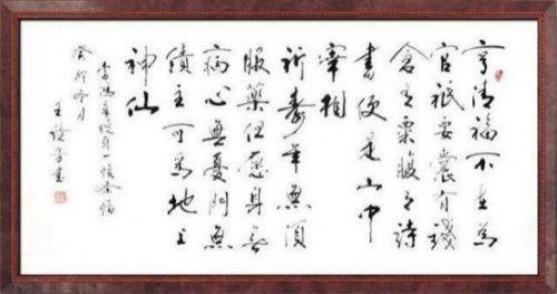 享清福不在為
官祇要囊有錢
倉有粟腹有詩
書便是山中
宰相
祈壽年無須
服藥但愿身無
病心無憂門無
債主可為地上
神仙
癸卯冬月